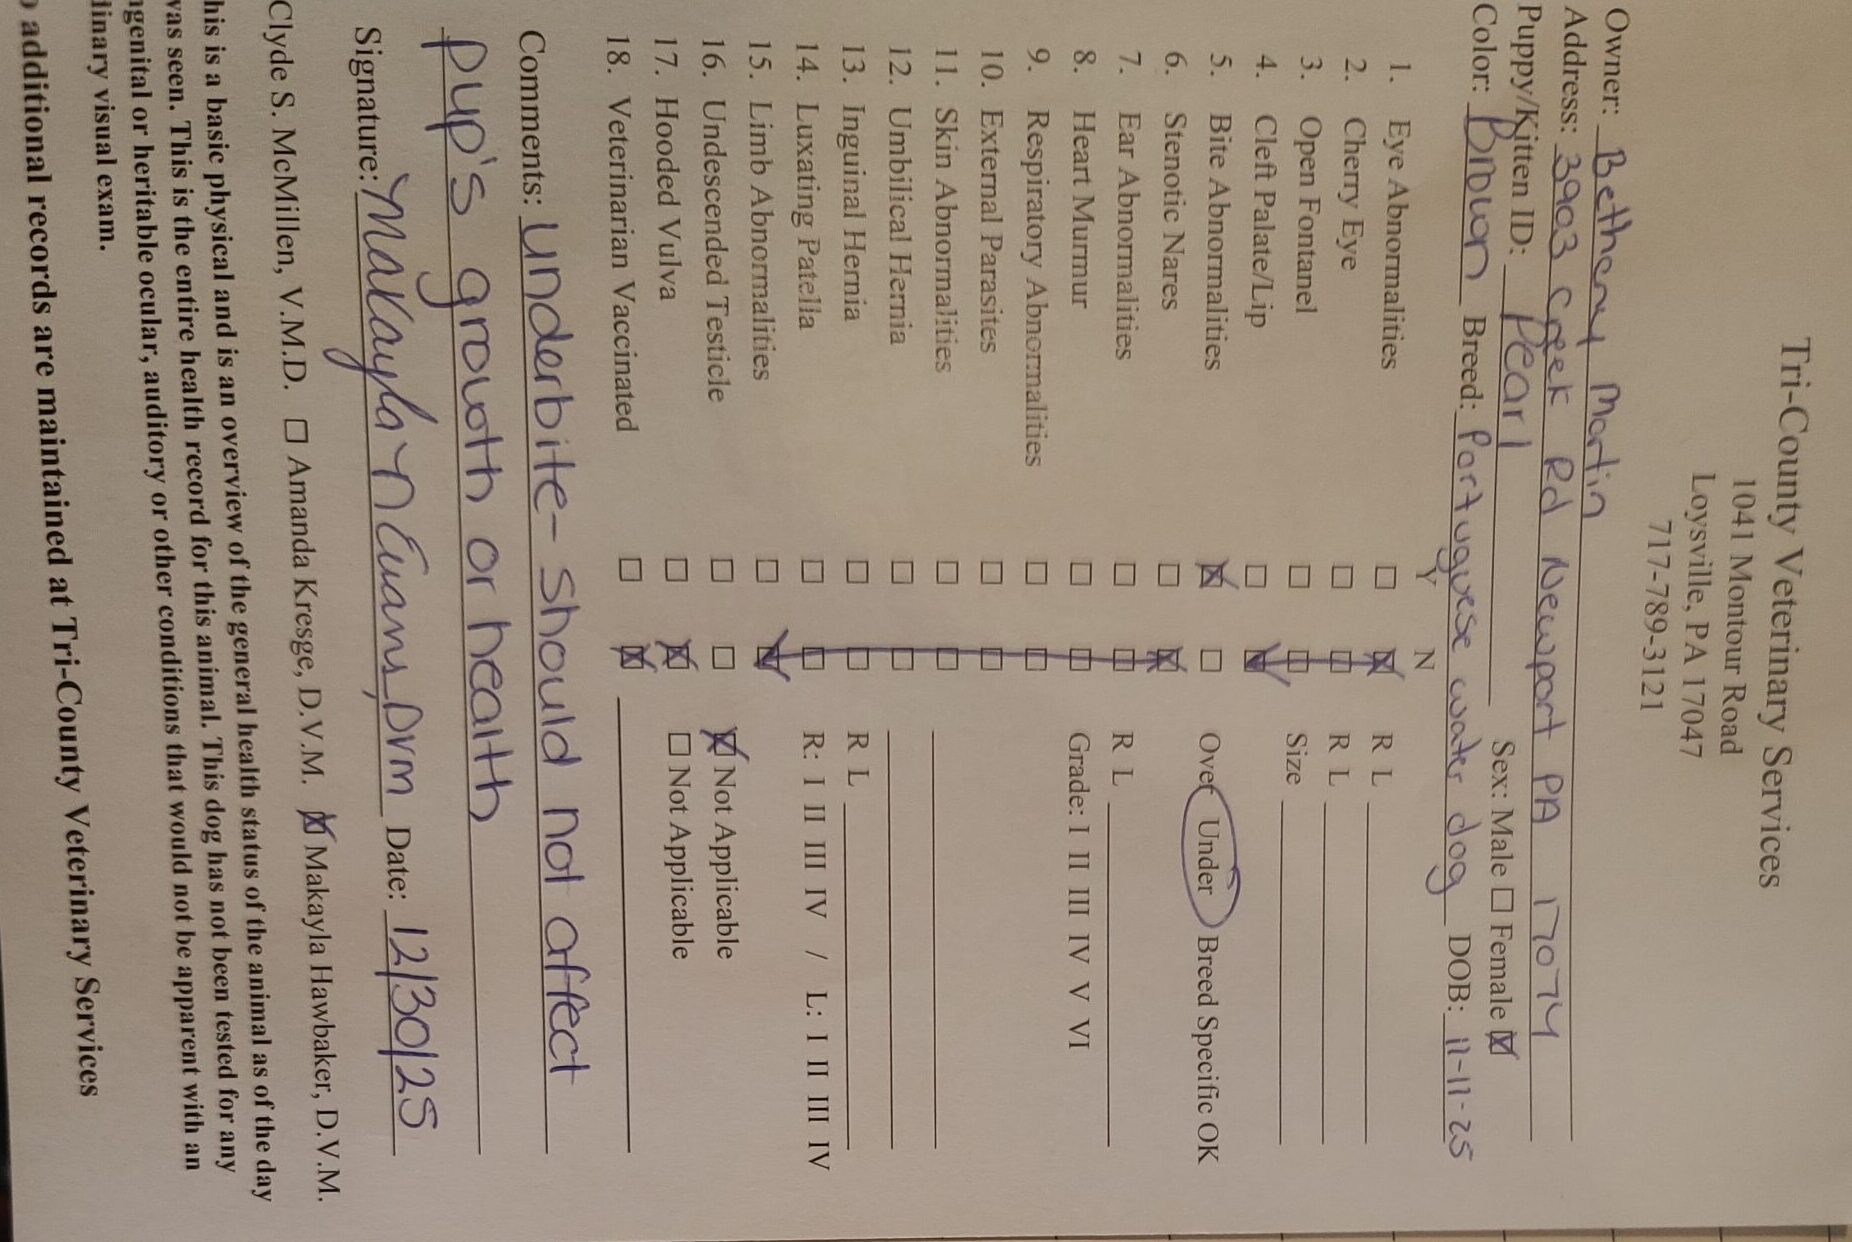 Tri-County Veterinary Services
1041 Montour Road
Loysville, PA 17047
717-789-3121
Owner: Betheny Martin
Address: 3903 Creek Rd Newport PA 17074
Puppy/Kitten ID: Pearl Sex: Male ☐ Female ☒
Color: Brown Breed: Portuguese water dog DOB: 11-11-25
Y N
1. Eye Abnormalities ☐ ☒ R L
2. Cherry Eye ☐ ☐ R L
3. Open Fontanel ☐ ☐ Size
4. Cleft Palate/Lip ☐ ☒
5. Bite Abnormalities ☒ ☐ Over Under Breed Specific OK
6. Stenotic Nares ☐ ☒
7. Ear Abnormalities ☐ ☐ R L
8. Heart Murmur ☐ ☐ Grade: I II III IV V VI
9. Respiratory Abnormalities ☐ ☐
10. External Parasites ☐ ☐
11. Skin Abnormalities ☐ ☐
12. Umbilical Hernia ☐ ☐
13. Inguinal Hernia ☐ ☐ R L
14. Luxating Patella ☐ ☐ R: I II III IV / L: I II III IV
15. Limb Abnormalities ☐ ☒
16. Undescended Testicle ☐ ☐ ☒ Not Applicable
17. Hooded Vulva ☐ ☒ ☐ Not Applicable
18. Veterinarian Vaccinated ☐ ☒
Comments: Underbite- should not affect
pup's growth or health
Signature: Makayla N Evans, DVM Date: 12/30/25
Clyde S. McMillen, V.M.D. ☐ Amanda Kresge, D.V.M. ☒ Makayla Hawbaker, D.V.M.
his is a basic physical and is an overview of the general health status of the animal as of the day
was seen. This is the entire health record for this animal. This dog has not been tested for any
ngenital or heritable ocular, auditory or other conditions that would not be apparent with an
dinary visual exam.
o additional records are maintained at Tri-County Veterinary Services